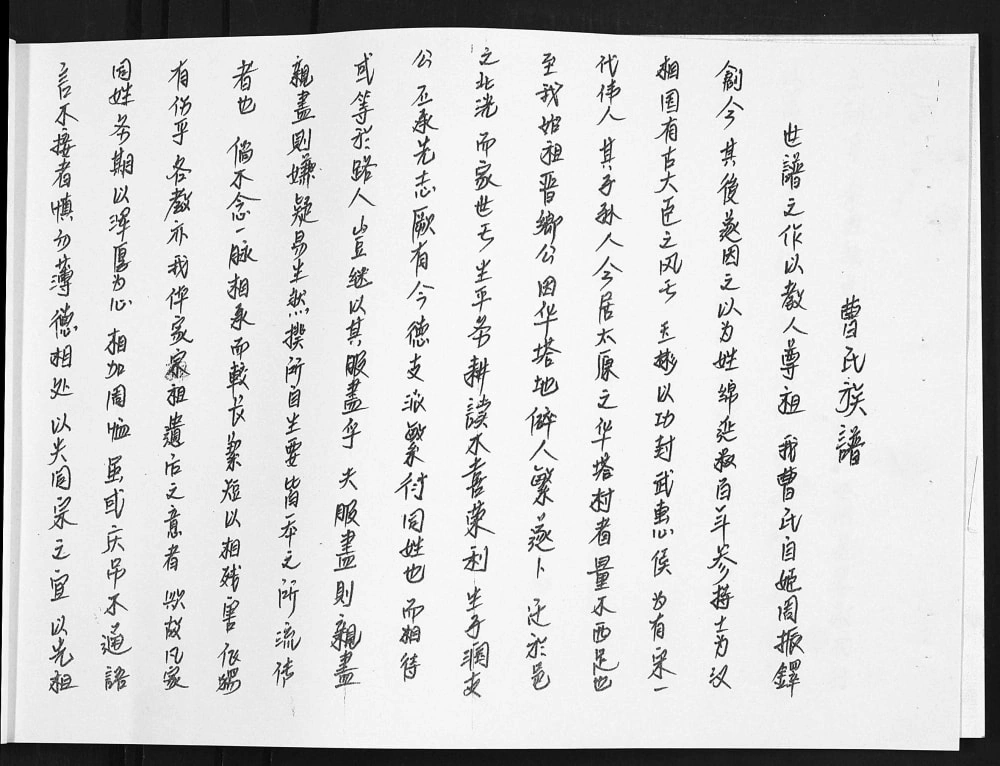 曹氏族譜
世譜之作以教人尊祖 我曹氏自姬周振鐸
創今其後遂因之以为姓綿延数百年参将士为汉
相国有古大臣之风 王彬以功封武惠侯为有宋一
代伟人 其子孙人今居太原之华塔村者量不西足也
至我始祖晋卿公因华塔地僻人繁遂卜迁於邑
之北 而家世 生平务耕讀不喜荣利生子 支
公丕承先志厥有今德支派繁衍同姓也而相待
或等於路人豈继以其服盡乎 夫服盡則親盡
親盡則嫌疑易生然揆所自生要皆一本之所流传
者也 倘不念一脉相承而較长絜短以相残害
有伤乎名教亦我 家宗祖遗后之意者 故凡家
同姓务期以浑厚为心相加周恤虽或庆吊不通語
言不接者慎勿薄德相处以失同宗之宜以先祖